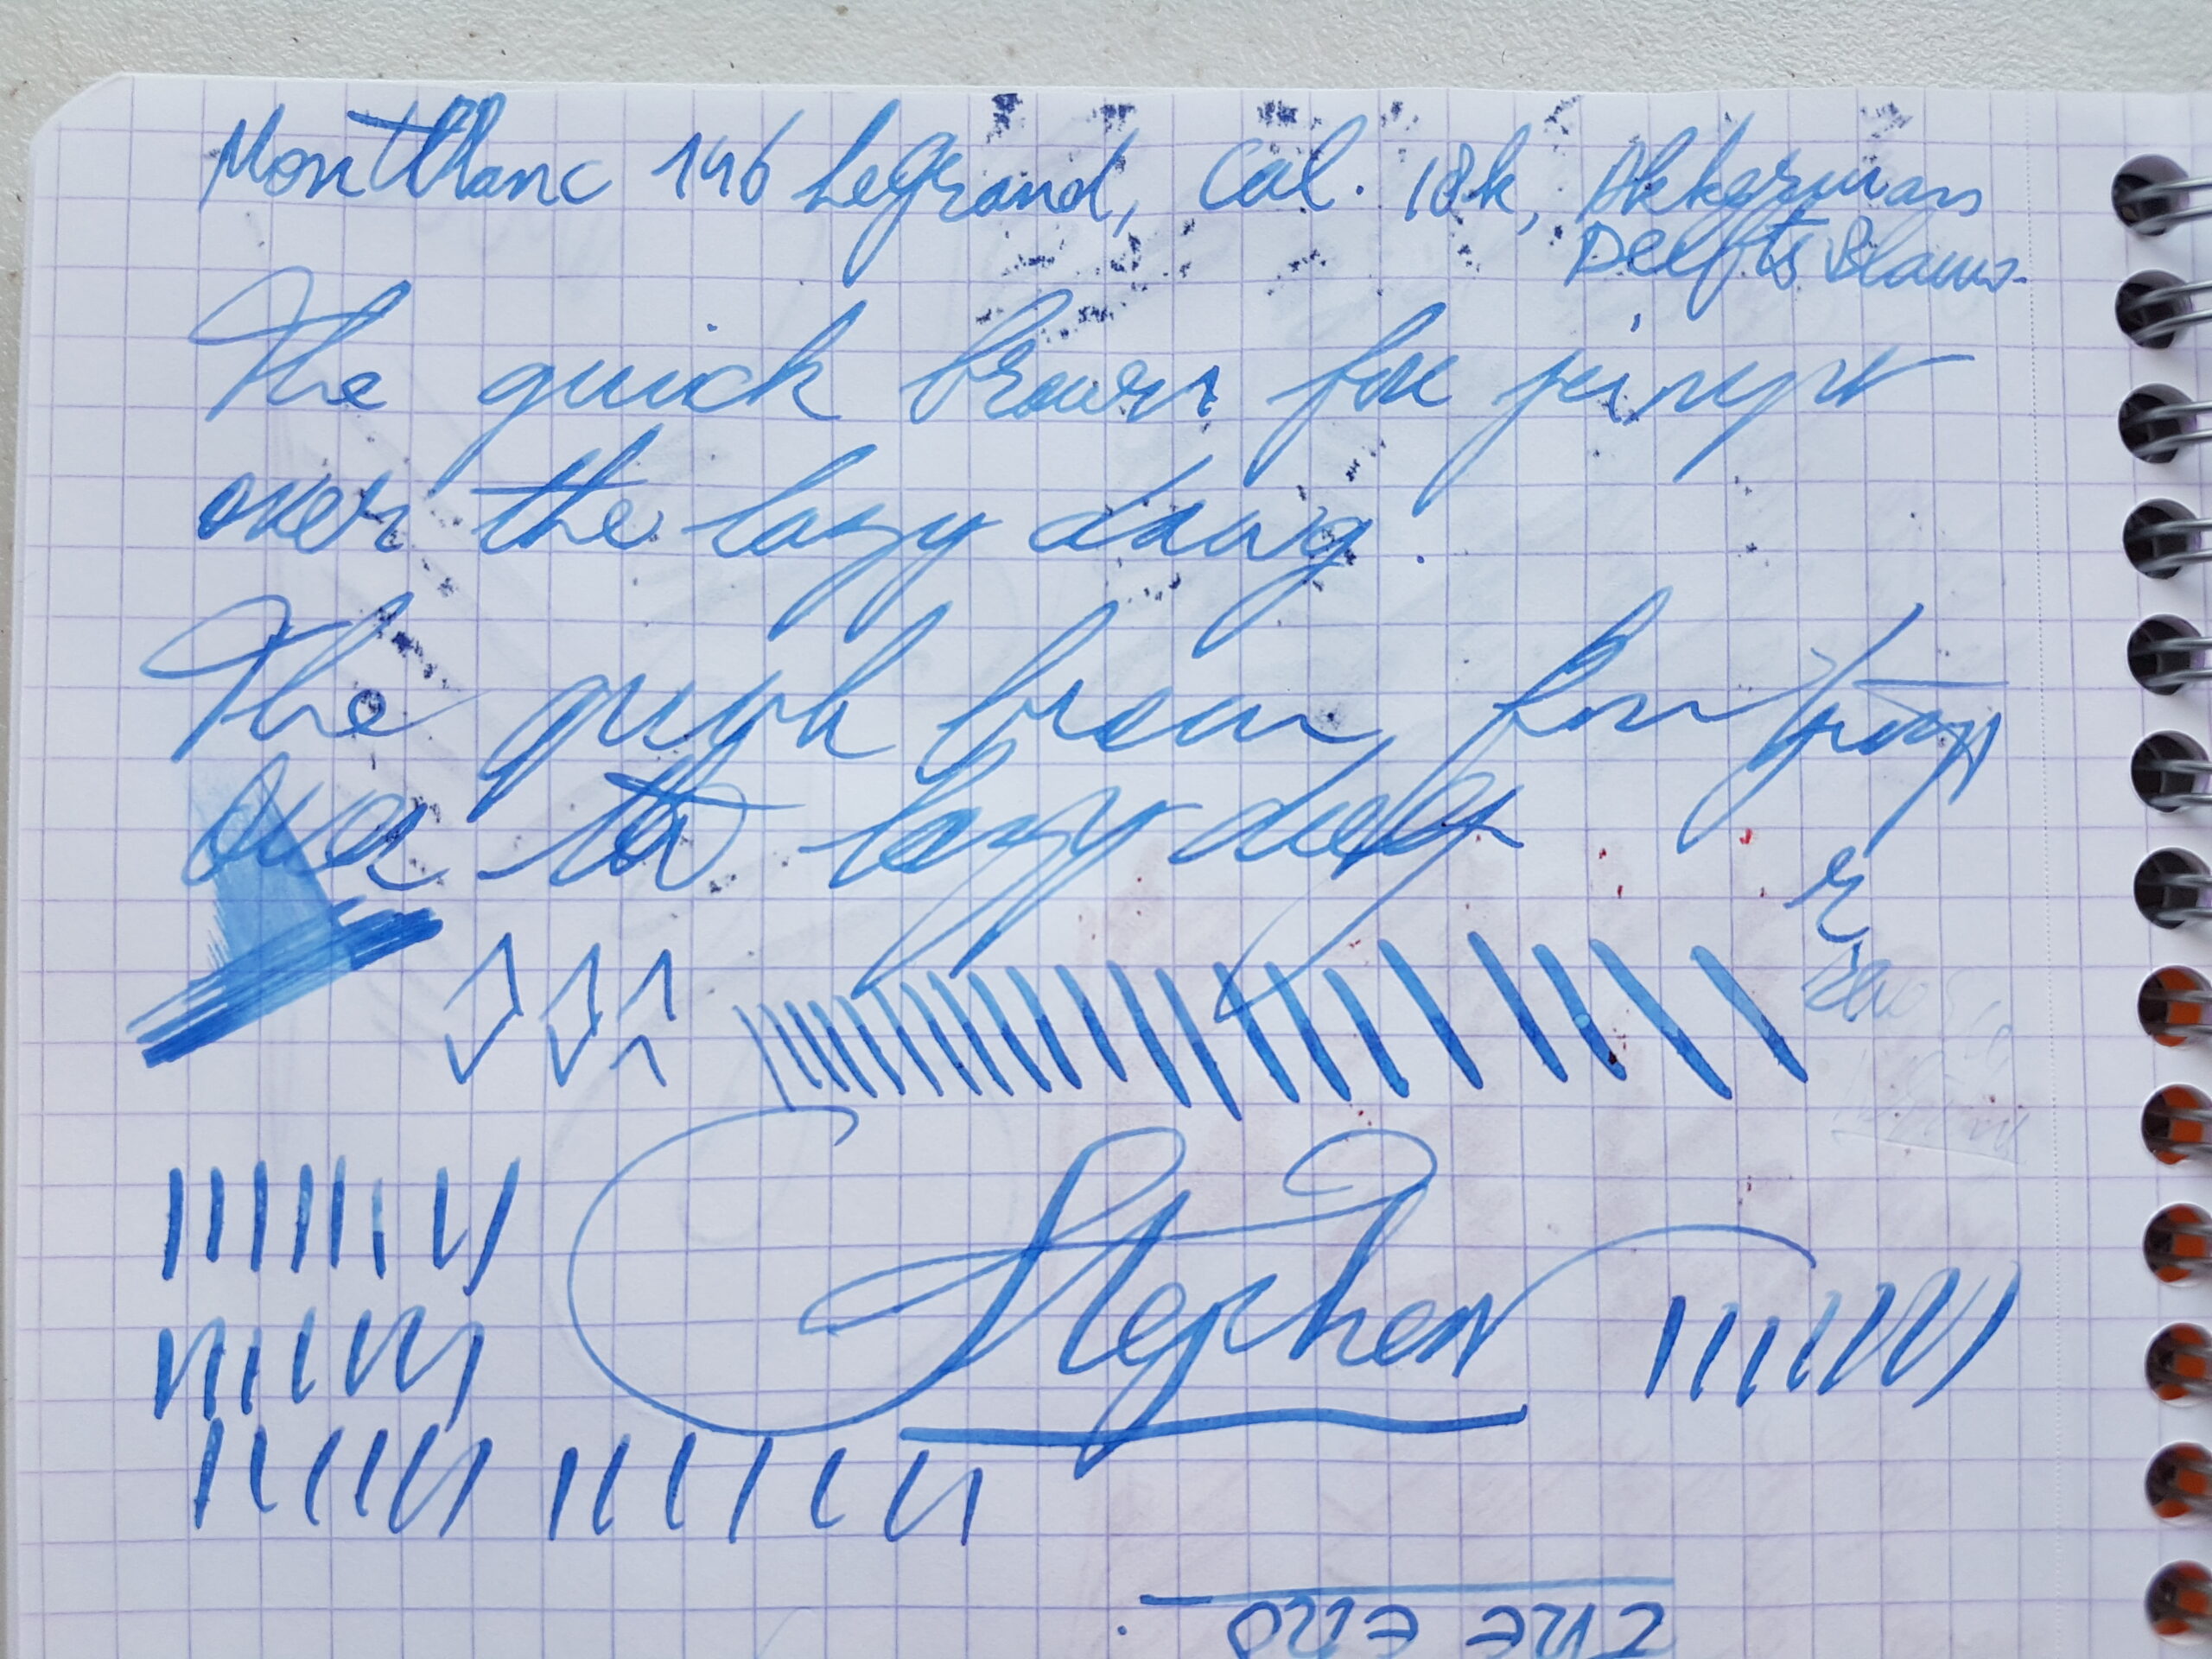 Montblanc 146 LeGrand, Cal. 18k, Akkerman
Delfts Blauw
The quick brown fox jumps
over the lazy dawg.
The quick brown fox jumps
over the lazy
Stephen
THE END